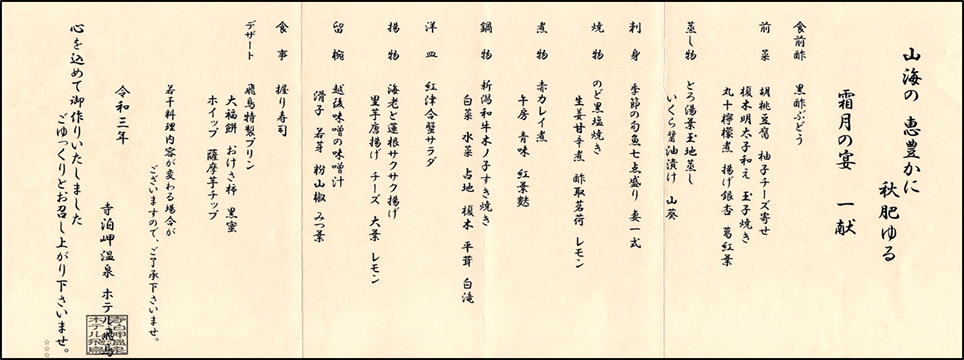 山海の 恵豊かに
秋肥ゆる
霜月の宴 一献
食前酢 黒酢ぶどう
前菜 胡桃豆腐 柚子チーズ寄せ
榎木明太子和え 玉子焼き
丸十檸檬煮 揚げ銀杏 葛紅葉
蒸し物 とろ湯葉玉地蒸し
いくら醤油漬け 山葵
刺身 季節の旬魚七点盛り 妻一式
焼物 のど黒塩焼き
生姜甘辛煮 酢取茗荷 レモン
煮物 赤カレイ煮
牛房 青味 紅葉麩
鍋物 新潟和牛木ノ子すき焼き
白菜 水菜 占地 榎木 平茸 白滝
洋皿 紅津合蟹サラダ
揚物 海老と蓮根サクサク揚げ
里芋唐揚げ チーズ 大葉 レモン
留椀 越後味噌の味噌汁
滑子 若芽 粉山椒 みつ葉
食事 握り寿司
デザート 飛鳥特製プリン
大福餅 おけさ柿 黒蜜
ホイップ 薩摩芋チップ
若干料理内容が変わる場合が
ございますので、ご了承下さいませ。
令和三年
寺泊岬温泉 ホテル飛鳥
心を込めて御作りいたしました
ごゆっくりとお召し上がり下さいませ。
☆☆☆